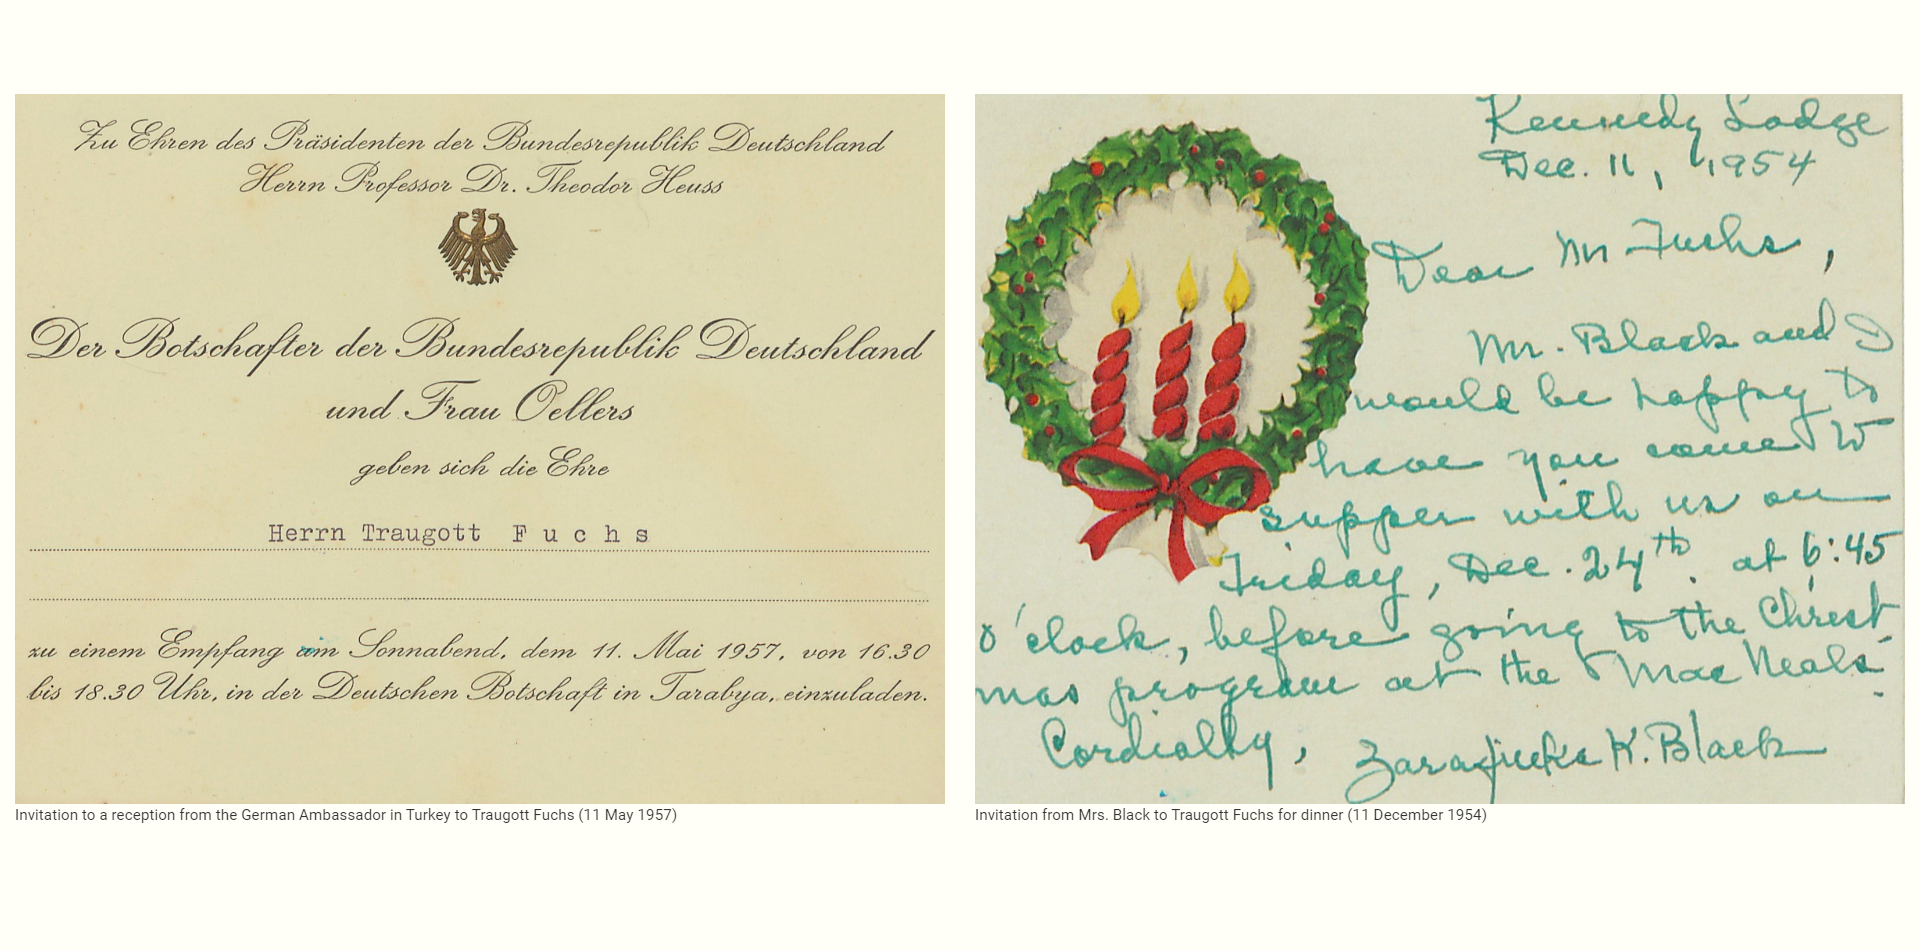 Zu Ehren des Präsidenten der Bundesrepublik Deutschland
Herrn Professor Dr. Theodor Heuss
Der Botschafter der Bundesrepublik Deutschland
und Frau Oellers
geben sich die Ehre
Herrn Traugott F u c h s
zu einem Empfang am Sonnabend, dem 11. Mai 1957, von 16.30
bis 18.30 Uhr, in der Deutschen Botschaft in Tarabya, einzuladen.
Invitation to a reception from the German Ambassador in Turkey to Traugott Fuchs (11 May 1957)
Kennedy Lodge
Dec. 11, 1954
Dear Mr Fuchs,
Mr. Black and I
would be happy to
have you come to
supper with us on
Friday, Dec. 24th. at 6:45
o'clock, before going to the Christ-
mas program at the MacNeals.
Cordially, K. Black
Invitation from Mrs. Black to Traugott Fuchs for dinner (11 December 1954)